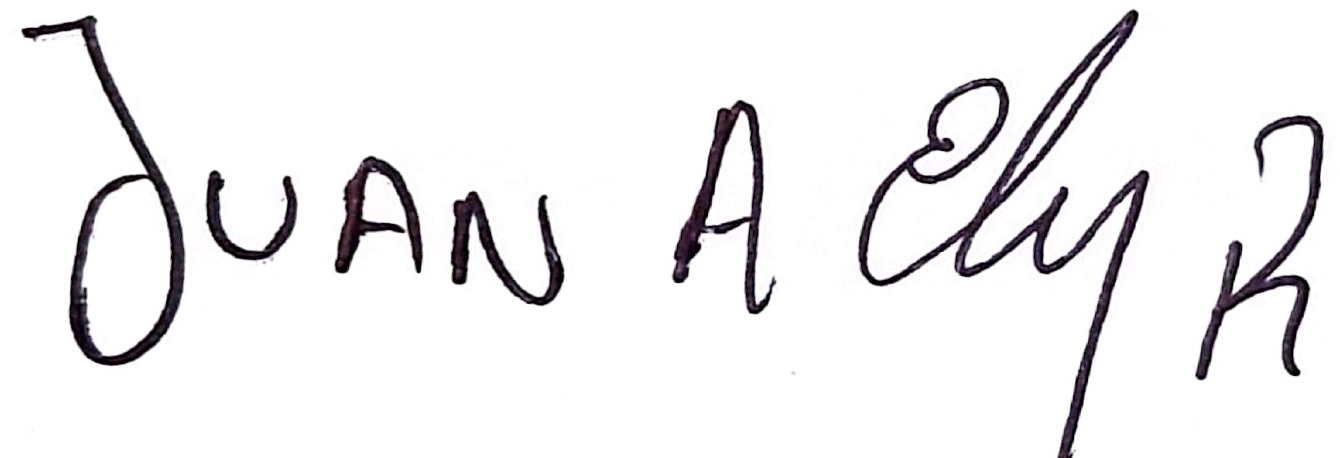 JUAN A Ely R